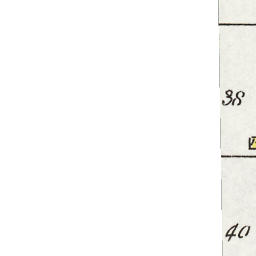 38
40